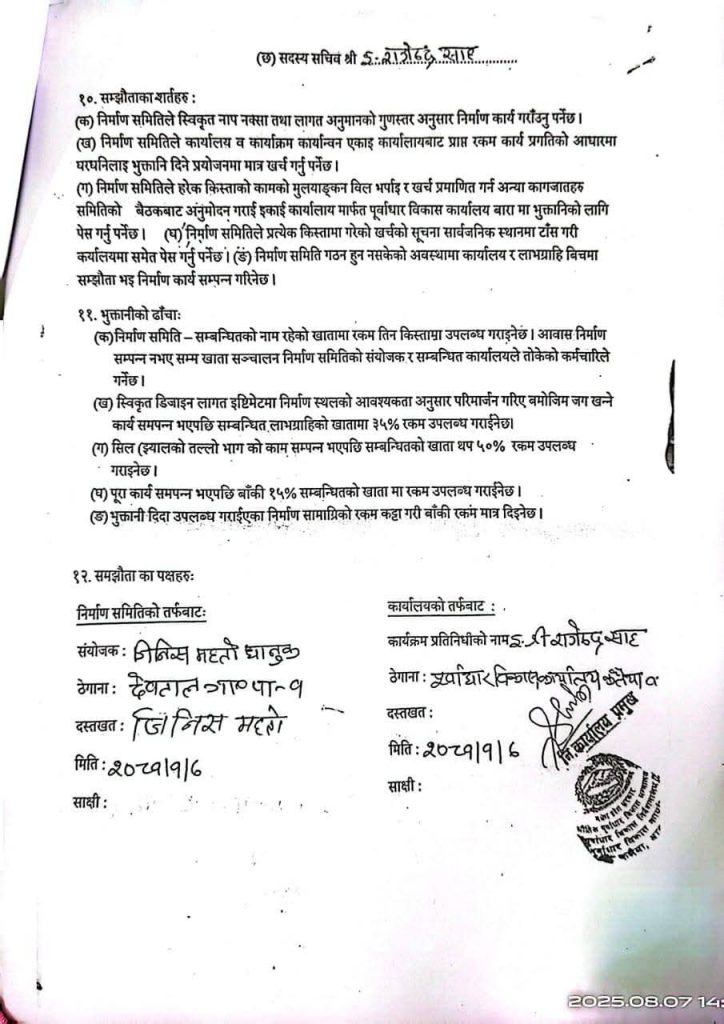 (छ) सदस्य सचिव श्री इ. राजेन्द्र साह
१०. सम्झौताका शर्तहरु :
(क) निर्माण समितिले स्विकृत नाप नक्सा तथा लागत अनुमानको गुणस्तर अनुसार निर्माण कार्य गराँउनु पर्नेछ।
(ख) निर्माण समितिले कार्यालय व कार्याक्रम कार्यान्वन एकाइ कार्यालायबाट प्राप्त रकम कार्य प्रगतिको आधारमा
घरघनिलाइ भुक्तानि दिने प्रयोजनमा मात्र खर्च गर्नु पर्नेछ।
(ग) निर्माण समितिले हरेक क़िस्ताको कामको मुलयाङ्कन विल भर्पाइ र खर्च प्रमाणित गर्न अन्या कागजातहरु
समितिको बैठकबाट अनुमोदन गराई इकाई कार्यालाय मार्फत पूर्वाधार विकास कार्यालय बारा मा भुक्तानिको लागि
पेस गर्नु पर्नेछ। (घ) निर्माण समितिले प्रत्येक किस्तामा गरेको खर्चको सूचना सार्वजनिक स्थानमा टाँस गरी
कर्यालयमा समेत पेस गर्नु पर्नेछ। (ङ) निर्माण समिति गठन हुन नसकेको अवस्थामा कार्यालय र लाभग्राहि बिचमा
सम्झौता भइ निर्माण कार्य सम्पन्न गरिनेछ।
११. भुक्तानीको ढाँचाः
(क) निर्माण समिति – सम्बन्धितको नाम रहेको खातामा रकम तिन किस्तामा उपलब्ध गराइनेछ। आवास निर्माण
सम्पन नभए सम्म खाता सञ्चालन निर्माण समितिको संयोजक र सम्बन्धित कार्यालयले तोकेको कर्मचारिले
गर्नेछ।
(ख) स्विकृत डिजाइन लागत इष्टिमेटमा निर्माण स्थलको आवश्यकता अनुसार परिमार्जन गरिए बमोजिम जग खन्ने
कार्य समपन्न भएपछि सम्बन्धित लाभग्राहिको खातामा ३५% रकम उपलब्ध गराईनेछ।
(ग) सिल (झ्यालको तल्लो भाग को काम सम्पन्न भएपछि सम्बन्धितको खाता थप ५०% रकम उपलब्ध
गराइनेछ।
(घ) पूरा कार्य समपन्न भएपछि बाँकी १५% सम्बन्धितको खाता मा रकम उपलब्ध गराईनेछ।
(ङ) भुक्तानी दिदा उपलब्ध गराईएका निर्माण सामाग्रिको रकम कट्टा गरी बाँकी रकम मात्र दिइनेछ।
१२. समझौता का पक्षहरुः
निर्माण समितिको तर्फबाटः
संयोजक : जिनिस महतो धानुक
ठेगाना : देवताल गा०पा-१
दस्तखत : जिनिस महतो
मिति : २०८१/१/६
साक्षी :
कार्यालयको तर्फबाट :
कार्यक्रम प्रतिनिधीको नाम इ. श्री राजेन्द्र साह
ठेगाना : पूर्वाधार विकास कार्यालय कलैया
दस्तखत :
नि. कार्यालय प्रमुख
मिति : २०८१/१/६
साक्षी :
2025.08.07 14: